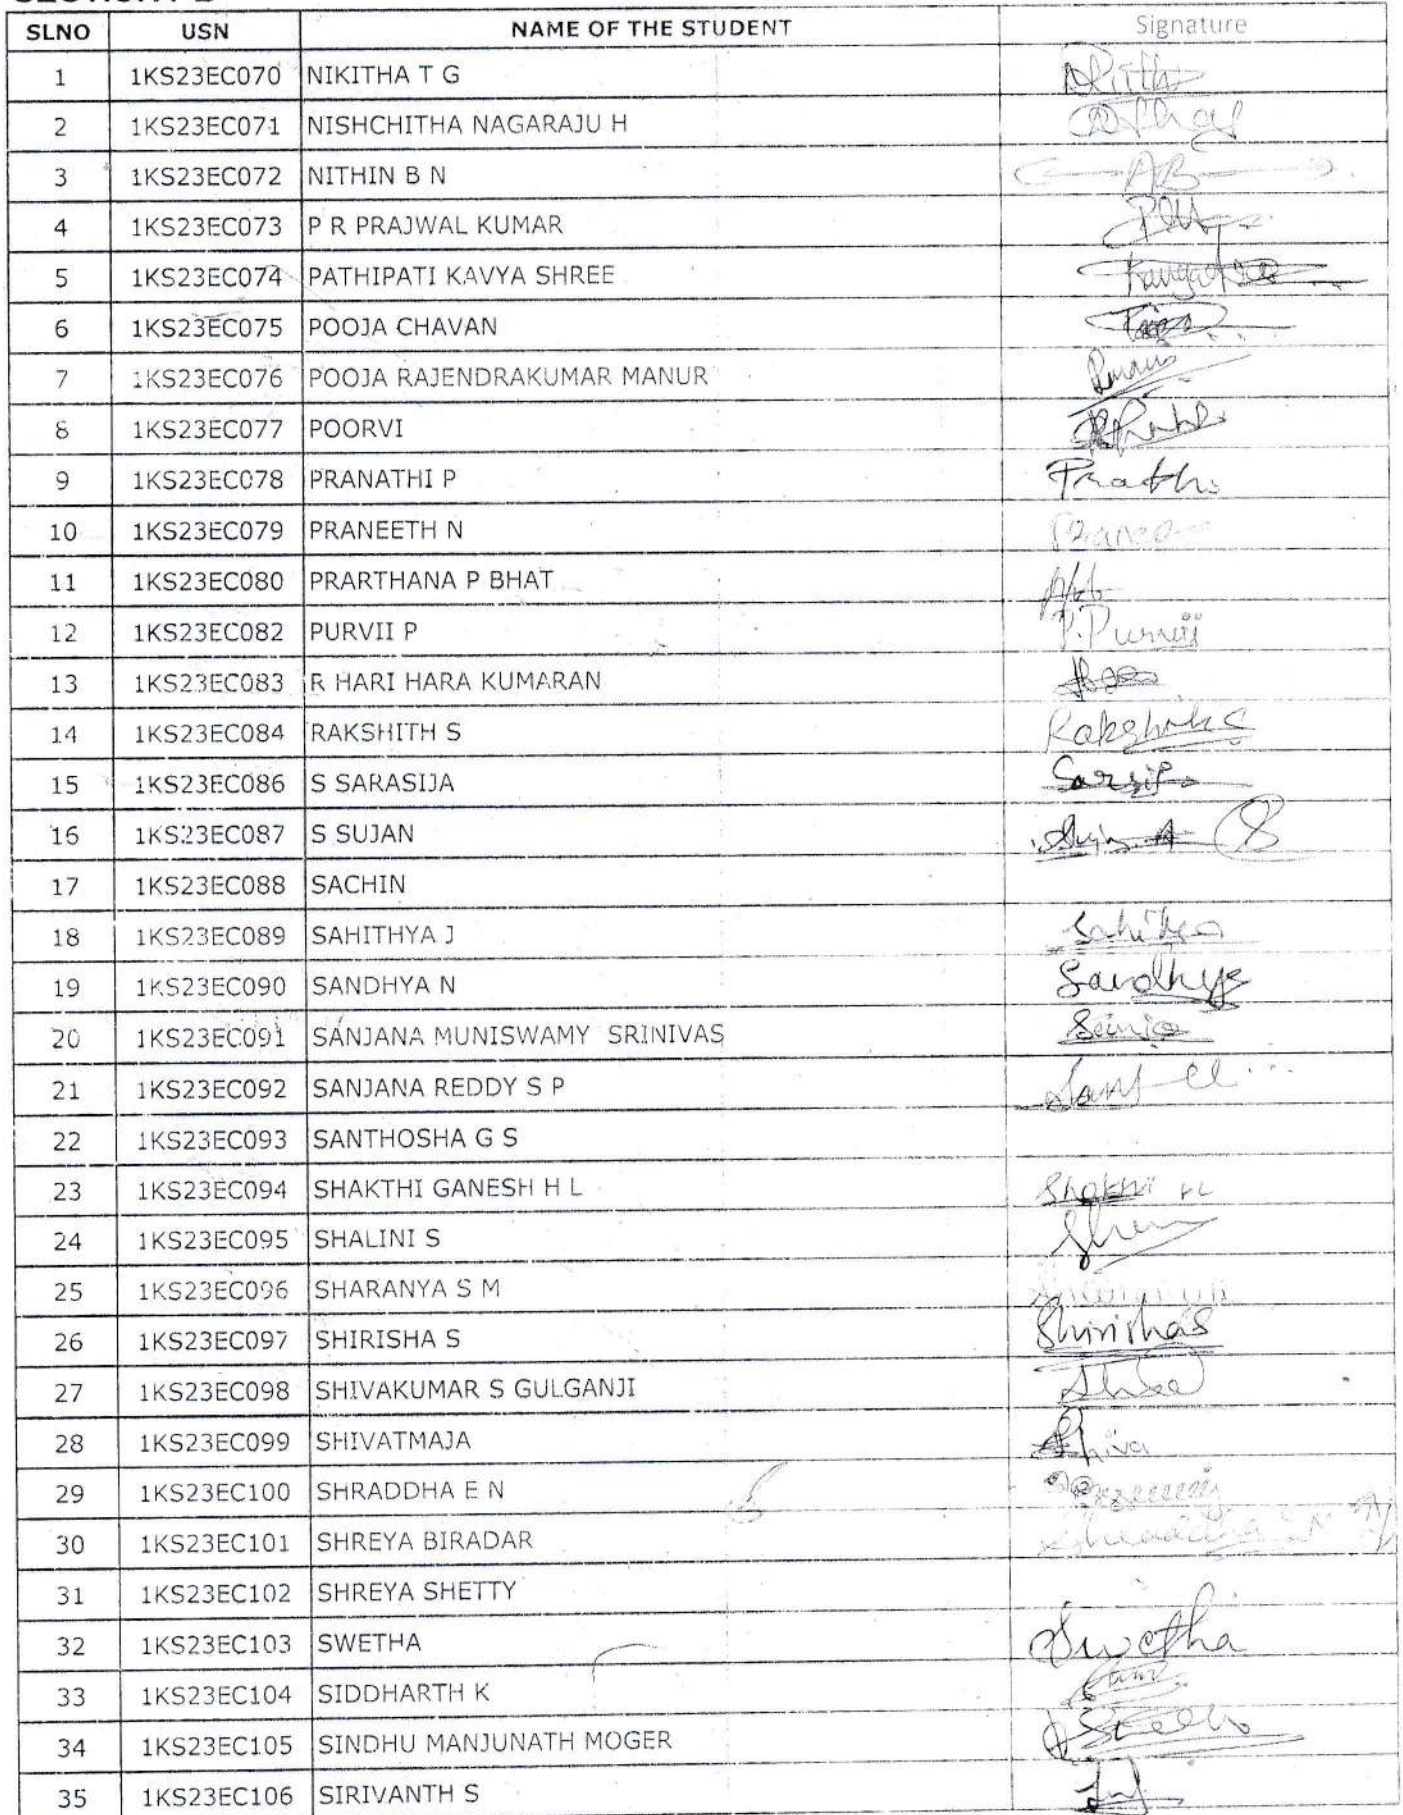 SLNO USN NAME OF THE STUDENT Signature
1 1KS23EC070 NIKITHA T G
2 1KS23EC071 NISHCHITHA NAGARAJU H
3 1KS23EC072 NITHIN B N AB
4 1KS23EC073 P R PRAJWAL KUMAR
5 1KS23EC074 PATHIPATI KAVYA SHREE
6 1KS23EC075 POOJA CHAVAN
7 1KS23EC076 POOJA RAJENDRAKUMAR MANUR
8 1KS23EC077 POORVI
9 1KS23EC078 PRANATHI P
10 1KS23EC079 PRANEETH N
11 1KS23EC080 PRARTHANA P BHAT
12 1KS23EC082 PURVII P P. Purvii
13 1KS23EC083 R HARI HARA KUMARAN
14 1KS23EC084 RAKSHITH S Rakshith S
15 1KS23EC086 S SARASIJA
16 1KS23EC087 S SUJAN
17 1KS23EC088 SACHIN
18 1KS23EC089 SAHITHYA J
19 1KS23EC090 SANDHYA N Sandhya
20 1KS23EC091 SANJANA MUNISWAMY SRINIVAS
21 1KS23EC092 SANJANA REDDY S P
22 1KS23EC093 SANTHOSHA G S
23 1KS23EC094 SHAKTHI GANESH H L
24 1KS23EC095 SHALINI S
25 1KS23EC096 SHARANYA S M
26 1KS23EC097 SHIRISHA S Shirisha S
27 1KS23EC098 SHIVAKUMAR S GULGANJI
28 1KS23EC099 SHIVATMAJA Shiva
29 1KS23EC100 SHRADDHA E N
30 1KS23EC101 SHREYA BIRADAR
31 1KS23EC102 SHREYA SHETTY
32 1KS23EC103 SWETHA Swetha
33 1KS23EC104 SIDDHARTH K
34 1KS23EC105 SINDHU MANJUNATH MOGER
35 1KS23EC106 SIRIVANTH S